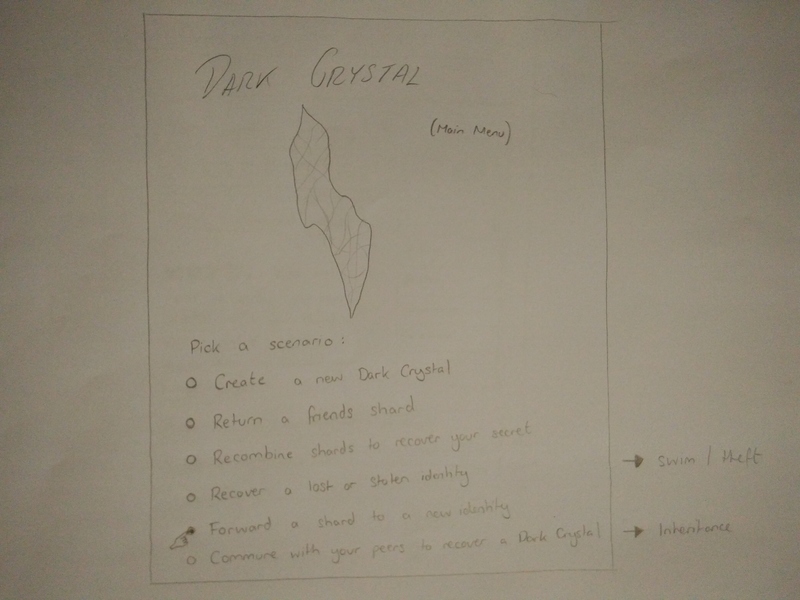 DARK CRYSTAL
(Main Menu)
Pick a scenario:
Create a new Dark Crystal
Return a friends shard
Recombine shards to recover your secret
Recover a lost or stolen identity
→ Swim / theft
Forward a shard to a new identity
Commune with your peers to recover a Dark Crystal
→ Inheritance